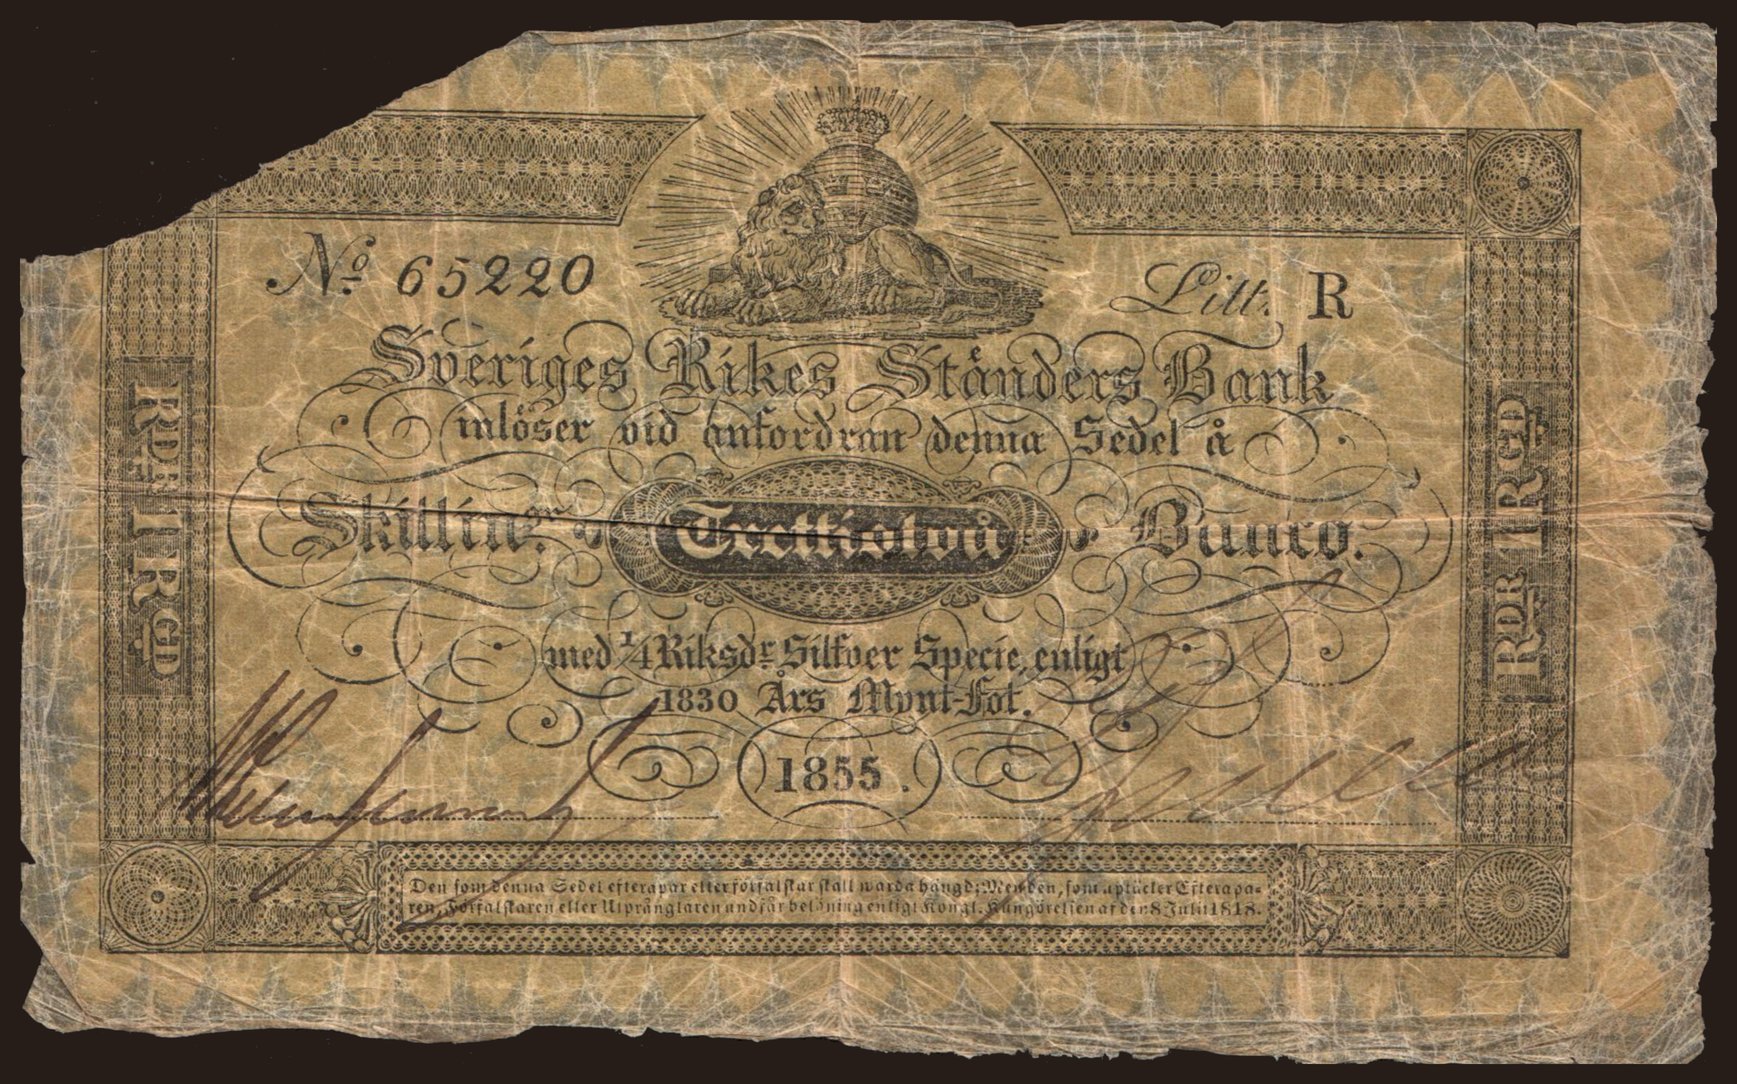 Nº 65220
Litt. R
Sveriges Rikes Ständers Bank
inlöser vid anfordran denna Sedel å
Skilling. Trettiotvå Banco.
med 1/4 Riksdr Silfver Specie, enligt
1830 Års Mynt-Fot.
1855.
RDR 1 RGD
RDR 1 RGD
Den som denna Sedel efterapar eller förfalskar skall warda hängd; Men den, som uptäcker Efterapa-
ren, Förfalskaren eller Utprånglaren undfår belöning enligt Kongl. Kungörelsen af den 8 Julii 1818.